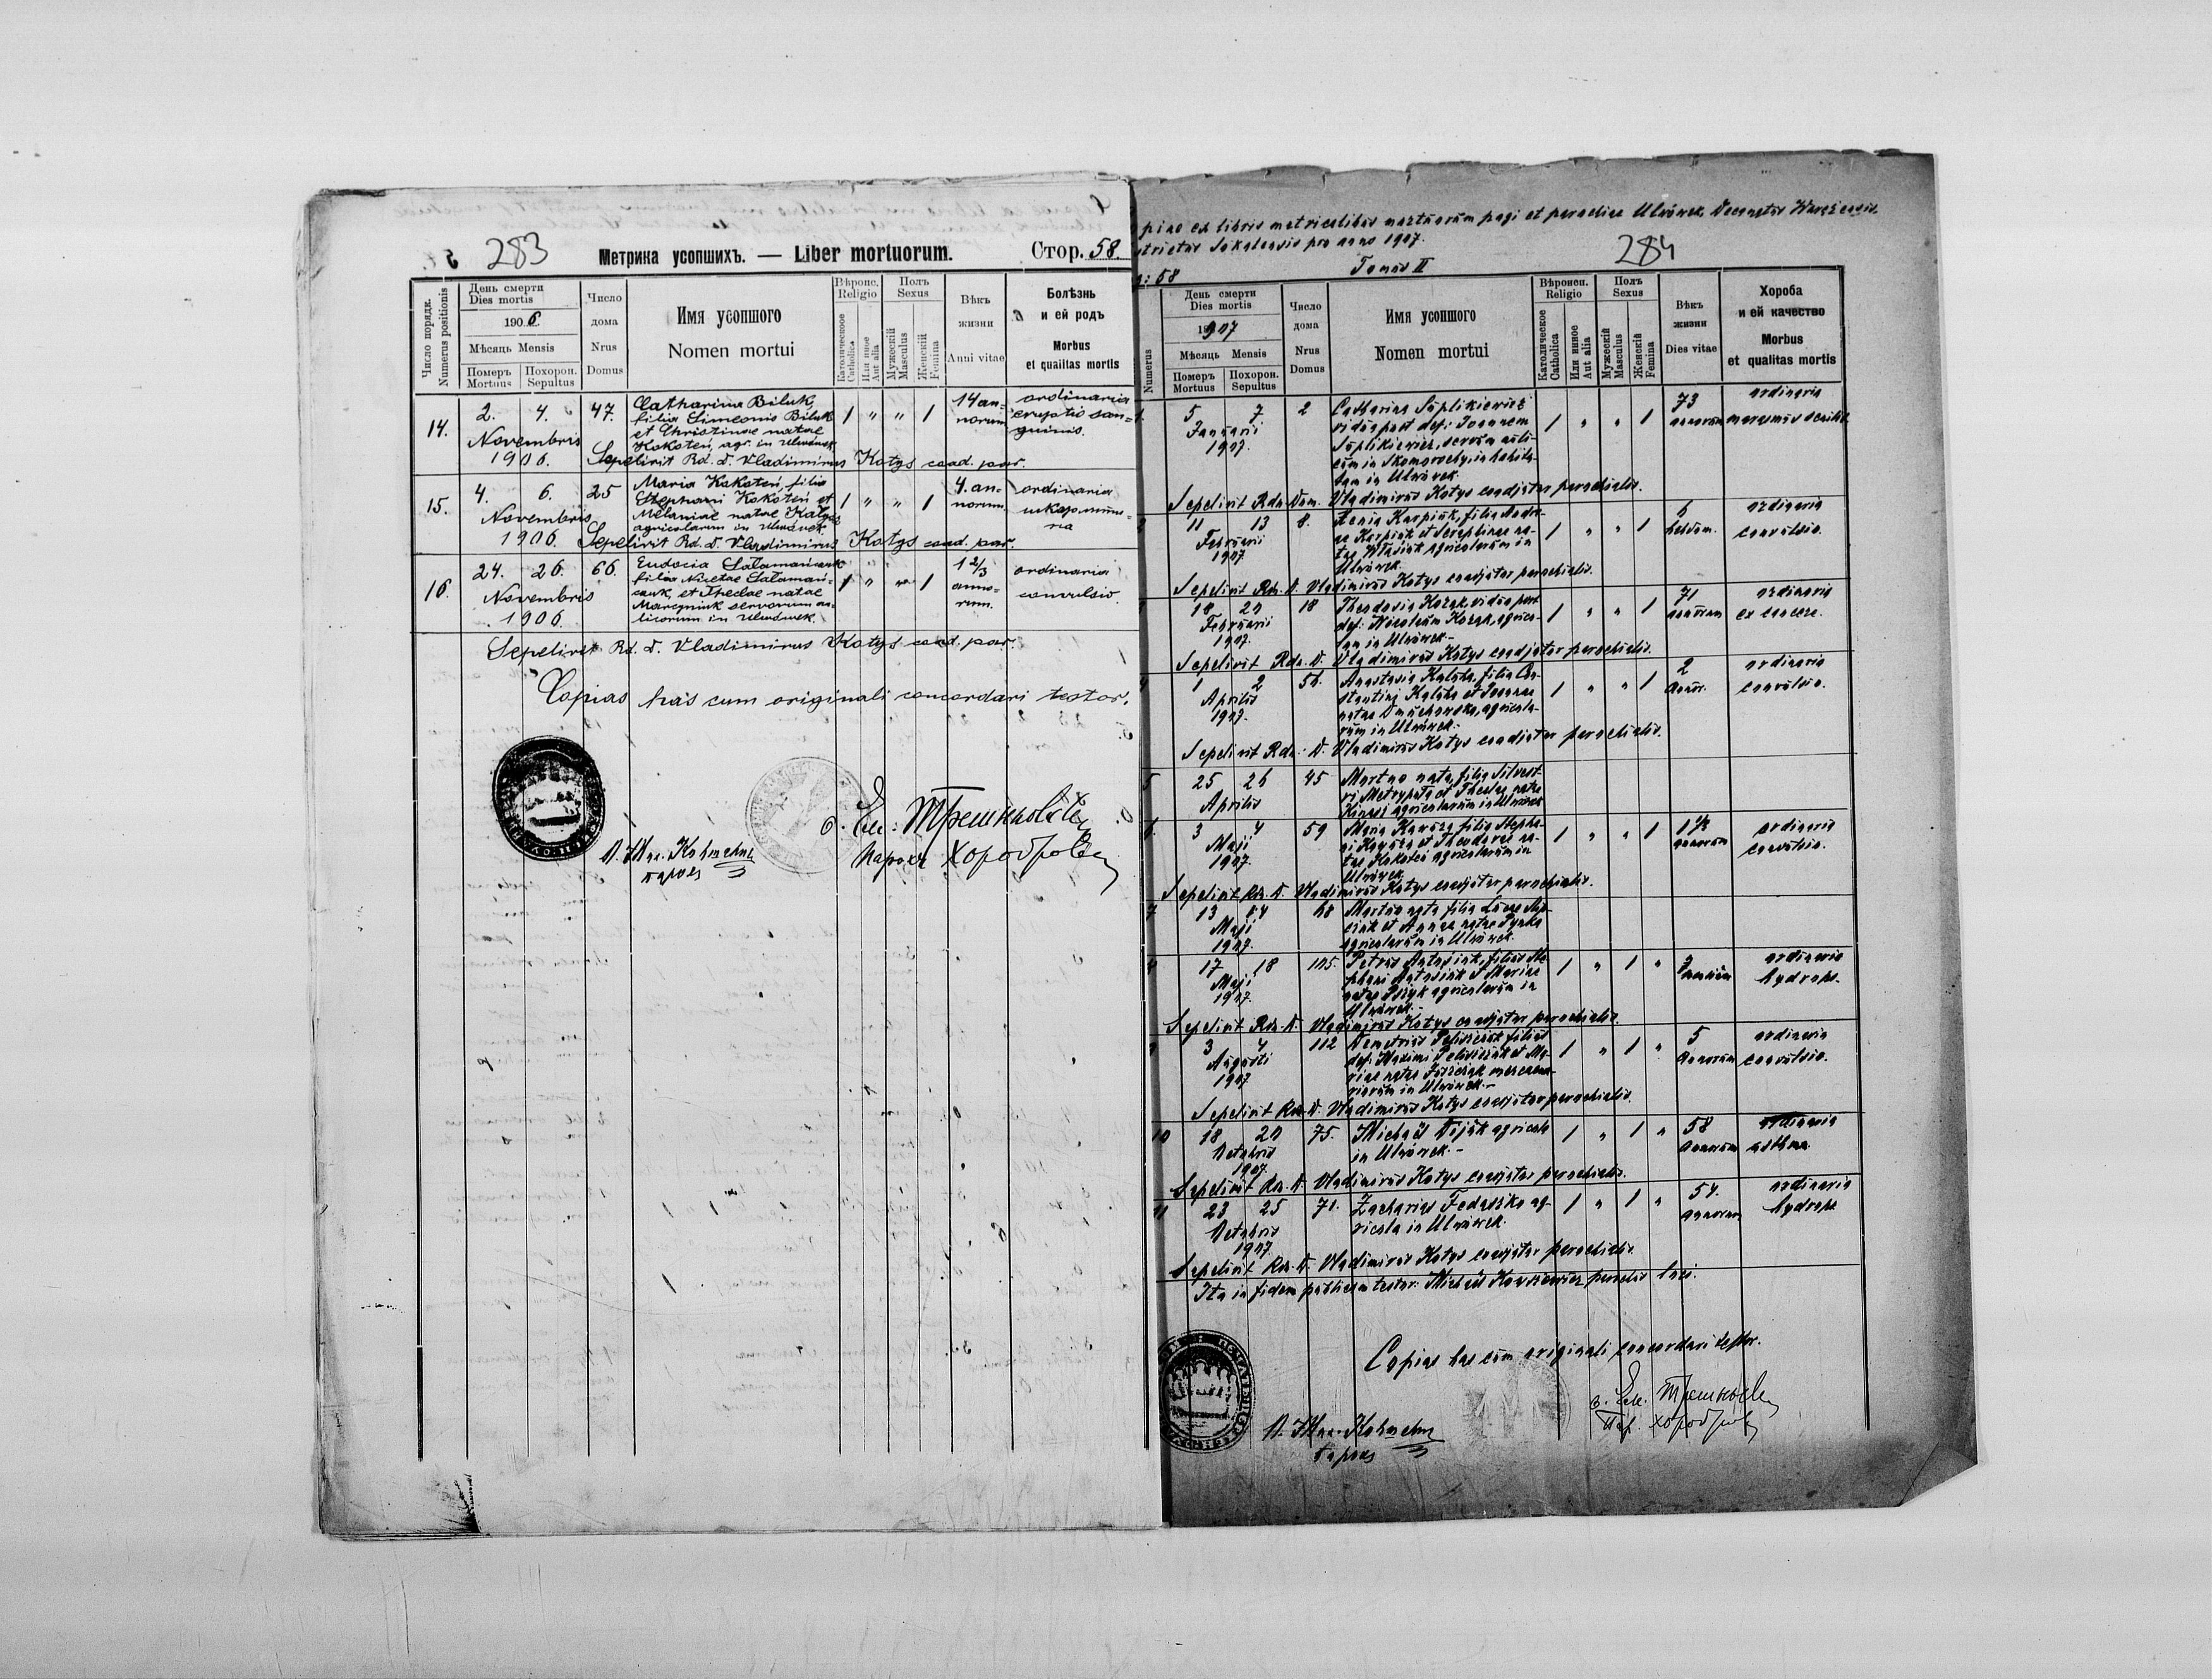 283
Метрика усопшихъ. — Liber mortuorum.
Стор. 58.
Число порядк.
Numerus positionis
День смерти
Dies mortis
1906.
Мѣсяць Mensis
Померъ
Mortuus
Похорон.
Sepultus
Число
дома
Nrus
Domus
Имя усопшого
Nomen mortui
Вѣроис.
Religio
Католическое
Catholica
Или иное
Aut alia
Полъ
Sexus
Мужескій
Masculus
Женскій
Femina
Вѣкъ
жизни
Anni vitae
Болѣзнь
и ей родъ
Morbus
et qualitas mortis
14. 2. 4. 47. Catharina Biluk, 1 " " 1 14 an= ordinaria
Novembris filia Simeonis Biluk norum eruptio san=
1906. et Christinae natae guinis.
Kokoteń, agr. in Ulwówek.
Sepelivit Rd. D. Vladimirus Kotys coad. par.
15. 4. 6. 25 Maria Kokoteń, filia 1 " " 1 4. an= ordinaria
Novembris Stephani Kokoteń et norum.
1906. Melaniae natae
agricolarum in Ulwówek.
Sepelivit Rd. D. Vladimirus Kotys coad. par.
16. 24. 26. 66. Eudocia 1 " " 1 1 2/3 ordinaria
Novembris filia Nicetae anno= convulsio.
1906. et Theclae natae rum.
servorum au=
licorum in Ulwówek.
Sepelivit Rd. D. Vladimirus Kotys coad. par.
Copias has cum originali concordari testor.
парох
Парох
284
ex libris metricalibus mortuorum pagi et parochiae Ulwówek, Decanatus
pro anno 1907.
Tomus II
: 58
Numerus
День смерти
Dies mortis
1907
Мѣсяць Mensis
Померъ
Mortuus
Похорон.
Sepultus
Число
дома
Nrus
Domus
Имя усопшого
Nomen mortui
Вѣроисп.
Religio
Католическое
Catholica
Или иное
Aut alia
Полъ
Sexus
Мужескій
Masculus
Женскій
Femina
Вѣкъ
жизни
Dies vitae
Хороба
и ей качество
Morbus
et qualitas mortis
1. 5 7 2 Catharina Suplikiewicz 1 " " 1 73 ordinaria
Januarii vidua post def: Joannem annorum marasmus senilis.
1907. Suplikiewicz, servum auli-
cum in Skomorochy, in habita-
tam in Ulwówek.
Sepelivit Rdn. Dom. Vladimirus Kotys coadjutor parochialis.
2 11 13 8. Xenia Karpiuk, filia Andre- 1 " " 1 6 ordinaria
Februarii ae Karpiuk et Seraphinae na- hebdom. convulsio.
1907 tae agricolarum in
Ulwówek.
Sepelivit Rdn. D. Vladimirus Kotys coadjutor parochialis.
18 20 18 Theodosia Kozak, vidua post 1 " " 1 71 ordinaria
Februarii def: Nicolaum Kozak, agrico- annorum ex cancere.
1907. lam in Ulwówek.-
Sepelivit Rdn. D. Vladimirus Kotys coadjutor parochialis.
4 1 2 Anastasia filia Con- 1 " " 1 2 ordinaria
Aprilis stantini et Joannae annor. convulsio.
1907. natae agricola-
rum in Ulwówek.-
Sepelivit Rdn: D. Vladimirus Kotys coadjutor parochialis.
5 25 26 45 Mortuo nata, filia Silvest-
Aprilis ri et Theclae natae
agricolarum in Ulwówek
6. 3 4 59 Maria filia Stepha- 1 " " 1 1 1/2 ordinaria
Maji ni et Theodorae na- annorum convulsio.
1907. tae Kokoteń agricolarum in
Ulwówek.
Sepelivit Rdn. D. Vladimirus Kotys coadjutor parochialis.
7 13 14 68 Mortuo nata filia Lucae
Maji et Annae natae
1907. agricolarum in Ulwówek.
17 18 105. Petrus Antosiuk, filius Ste- 1 " 1 " ordinaria
Maji phani Antosiuk et Mariae hydrops.
1907. natae agricolarum in
Ulwówek.-
Sepelivit Rdn. D. Vladimirus Kotys coadjutor parochialis.
3 4 112 Demetrius filius 1 " 1 " 5 ordinaria
Augusti def: Maximi et Ma- annorum convulsio.
1907 riae natae mercena-
riorum in Ulwówek.-
Sepelivit Rdn. D. Vladimirus Kotys coadjutor parochialis.
10 18 20 75. Michaël agricola 1 " 1 " 58 ordinaria
Octobris in Ulwówek.- annorum asthma
1907
Sepelivit Rdn. D. Vladimirus Kotys coadjutor parochialis.
11 23 25 71. Zacharias ag- 1 " 1 " 54. ordinaria
Octobris ricola in Ulwówek. annorum hydrops
1907
Sepelivit Rdn. D. Vladimirus Kotys coadjutor parochialis.
Ita in fidem publicam testor: Michaël parochus loci.
Copias has cum originali concordari testor.
парох
Пар.